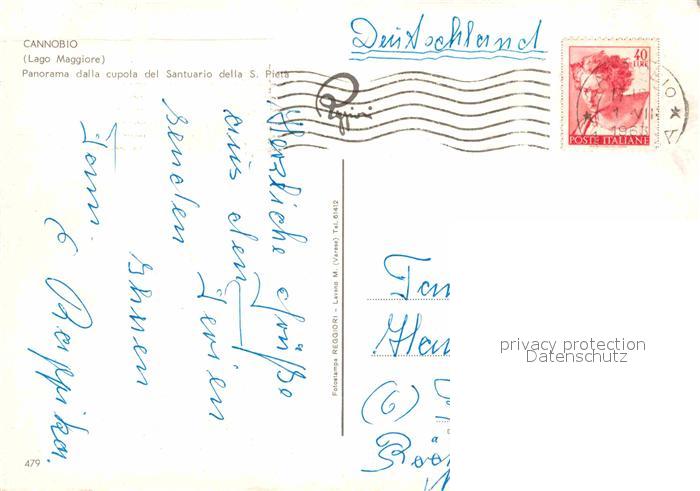 CANNOBIO
(Lago Maggiore)
Panorama dalla cupola del Santuario della S. Pietà
Deutschland
40
LIRE
POSTE ITALIANE
Reggiori
Herzliche Grüße
aus den Ferien
senden Ihnen
Fam.
Fotostampa REGGIORI - Laveno M. (Varese) Tel. 61412
(6)
privacy protection
Datenschutz
479